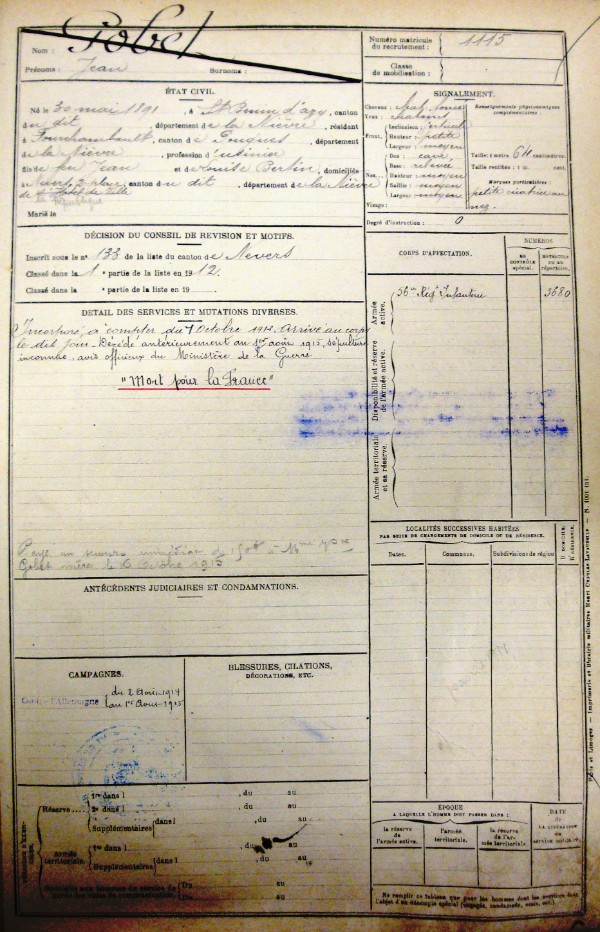 Nom : Gobet
Prénoms : Jean Surnoms :
Numéro matricule du recrutement : 1115
Classe de mobilisation :
ÉTAT CIVIL.
Né le 30 mai 1891, à St Benin d'azy, canton
du dit, département de la Nièvre, résidant
à Fourchambault, canton de Pougues, département
de la Nièvre, profession d'usinier
fils de feu Jean et de Louise Berlin, domiciliés
à Nevers, 2 place, canton du dit, département de la Nièvre
de l'Hôtel de Ville
République
Marié le
SIGNALEMENT.
Cheveux : chat. foncé
Yeux : chatains
Renseignements physionomiques complémentaires :
Front. Inclinaison : verticale
Hauteur : petite
Largeur : moyen
Nez. Dos : cave
Base : relevée
Hauteur : moyen
Saillie : moyen
Largeur : moyen
Visage :
Taille : 1 mètre 64 centimètres.
Taille rectifiée : 1 m. cent.
Marques particulières :
petite cicatrice au
nez.
Degré d'instruction : 0
DÉCISION DU CONSEIL DE REVISION ET MOTIFS.
Inscrit sous le n° 133 de la liste du canton de Nevers
Classé dans la 1e partie de la liste en 1912.
Classé dans la partie de la liste en 19
CORPS D'AFFECTATION.
NUMÉROS
AU CONTRÔLE spécial.
MATRICULE OU AU répertoire.
Armée active.
56me Régt Infanterie 3680
Disponibilité et réserve de l'armée active.
Armée territoriale et sa réserve.
DETAIL DES SERVICES ET MUTATIONS DIVERSES.
Incorporé à compter du 7 Octobre 1912. Arrivé au corps
le dit jour. Décédé antérieurement au 1er août 1915, sépulture
inconnue, avis officieux du Ministère de la Guerre
"Mort pour la France"
Payé un secours immédiat de 150f à Mme Vve
Gobet mère le 6 Octobre 1915
ANTÉCÉDENTS JUDICIAIRES ET CONDAMNATIONS.
LOCALITÉS SUCCESSIVES HABITÉES
PAR SUITE DE CHANGEMENTS DE DOMICILE OU DE RÉSIDENCE.
Dates. Communes. Subdivisions de région D. DOMICILE. R. RÉSIDENCE.
CAMPAGNES.
Contre l'Allemagne du 2 Août 1914
au 1er Août 1915
BLESSURES, CITATIONS,
DÉCORATIONS, ETC.
Réserve 1re dans l , du au
2e dans l , du au
Supplémentaires dans l , du au
Armée territoriale. 1re dans l , du au
Supplémentaires dans l , du au
Du au
Du au
ÉPOQUE
A LAQUELLE L'HOMME DOIT PASSER DANS :
la réserve de l'armée active.
l'armée territoriale.
la réserve de l'armée territoriale
DATE
DE LA LIBÉRATION DU SERVICE MILITAIRE.
Ne remplir ce tableau que pour les hommes dont les services font
l'objet d'un décompte spécial (engagés, condamnés, omis, etc.).
Paris et Limoges. — Imprimerie et librairie militaires Henri Charles-Lavauzelle.